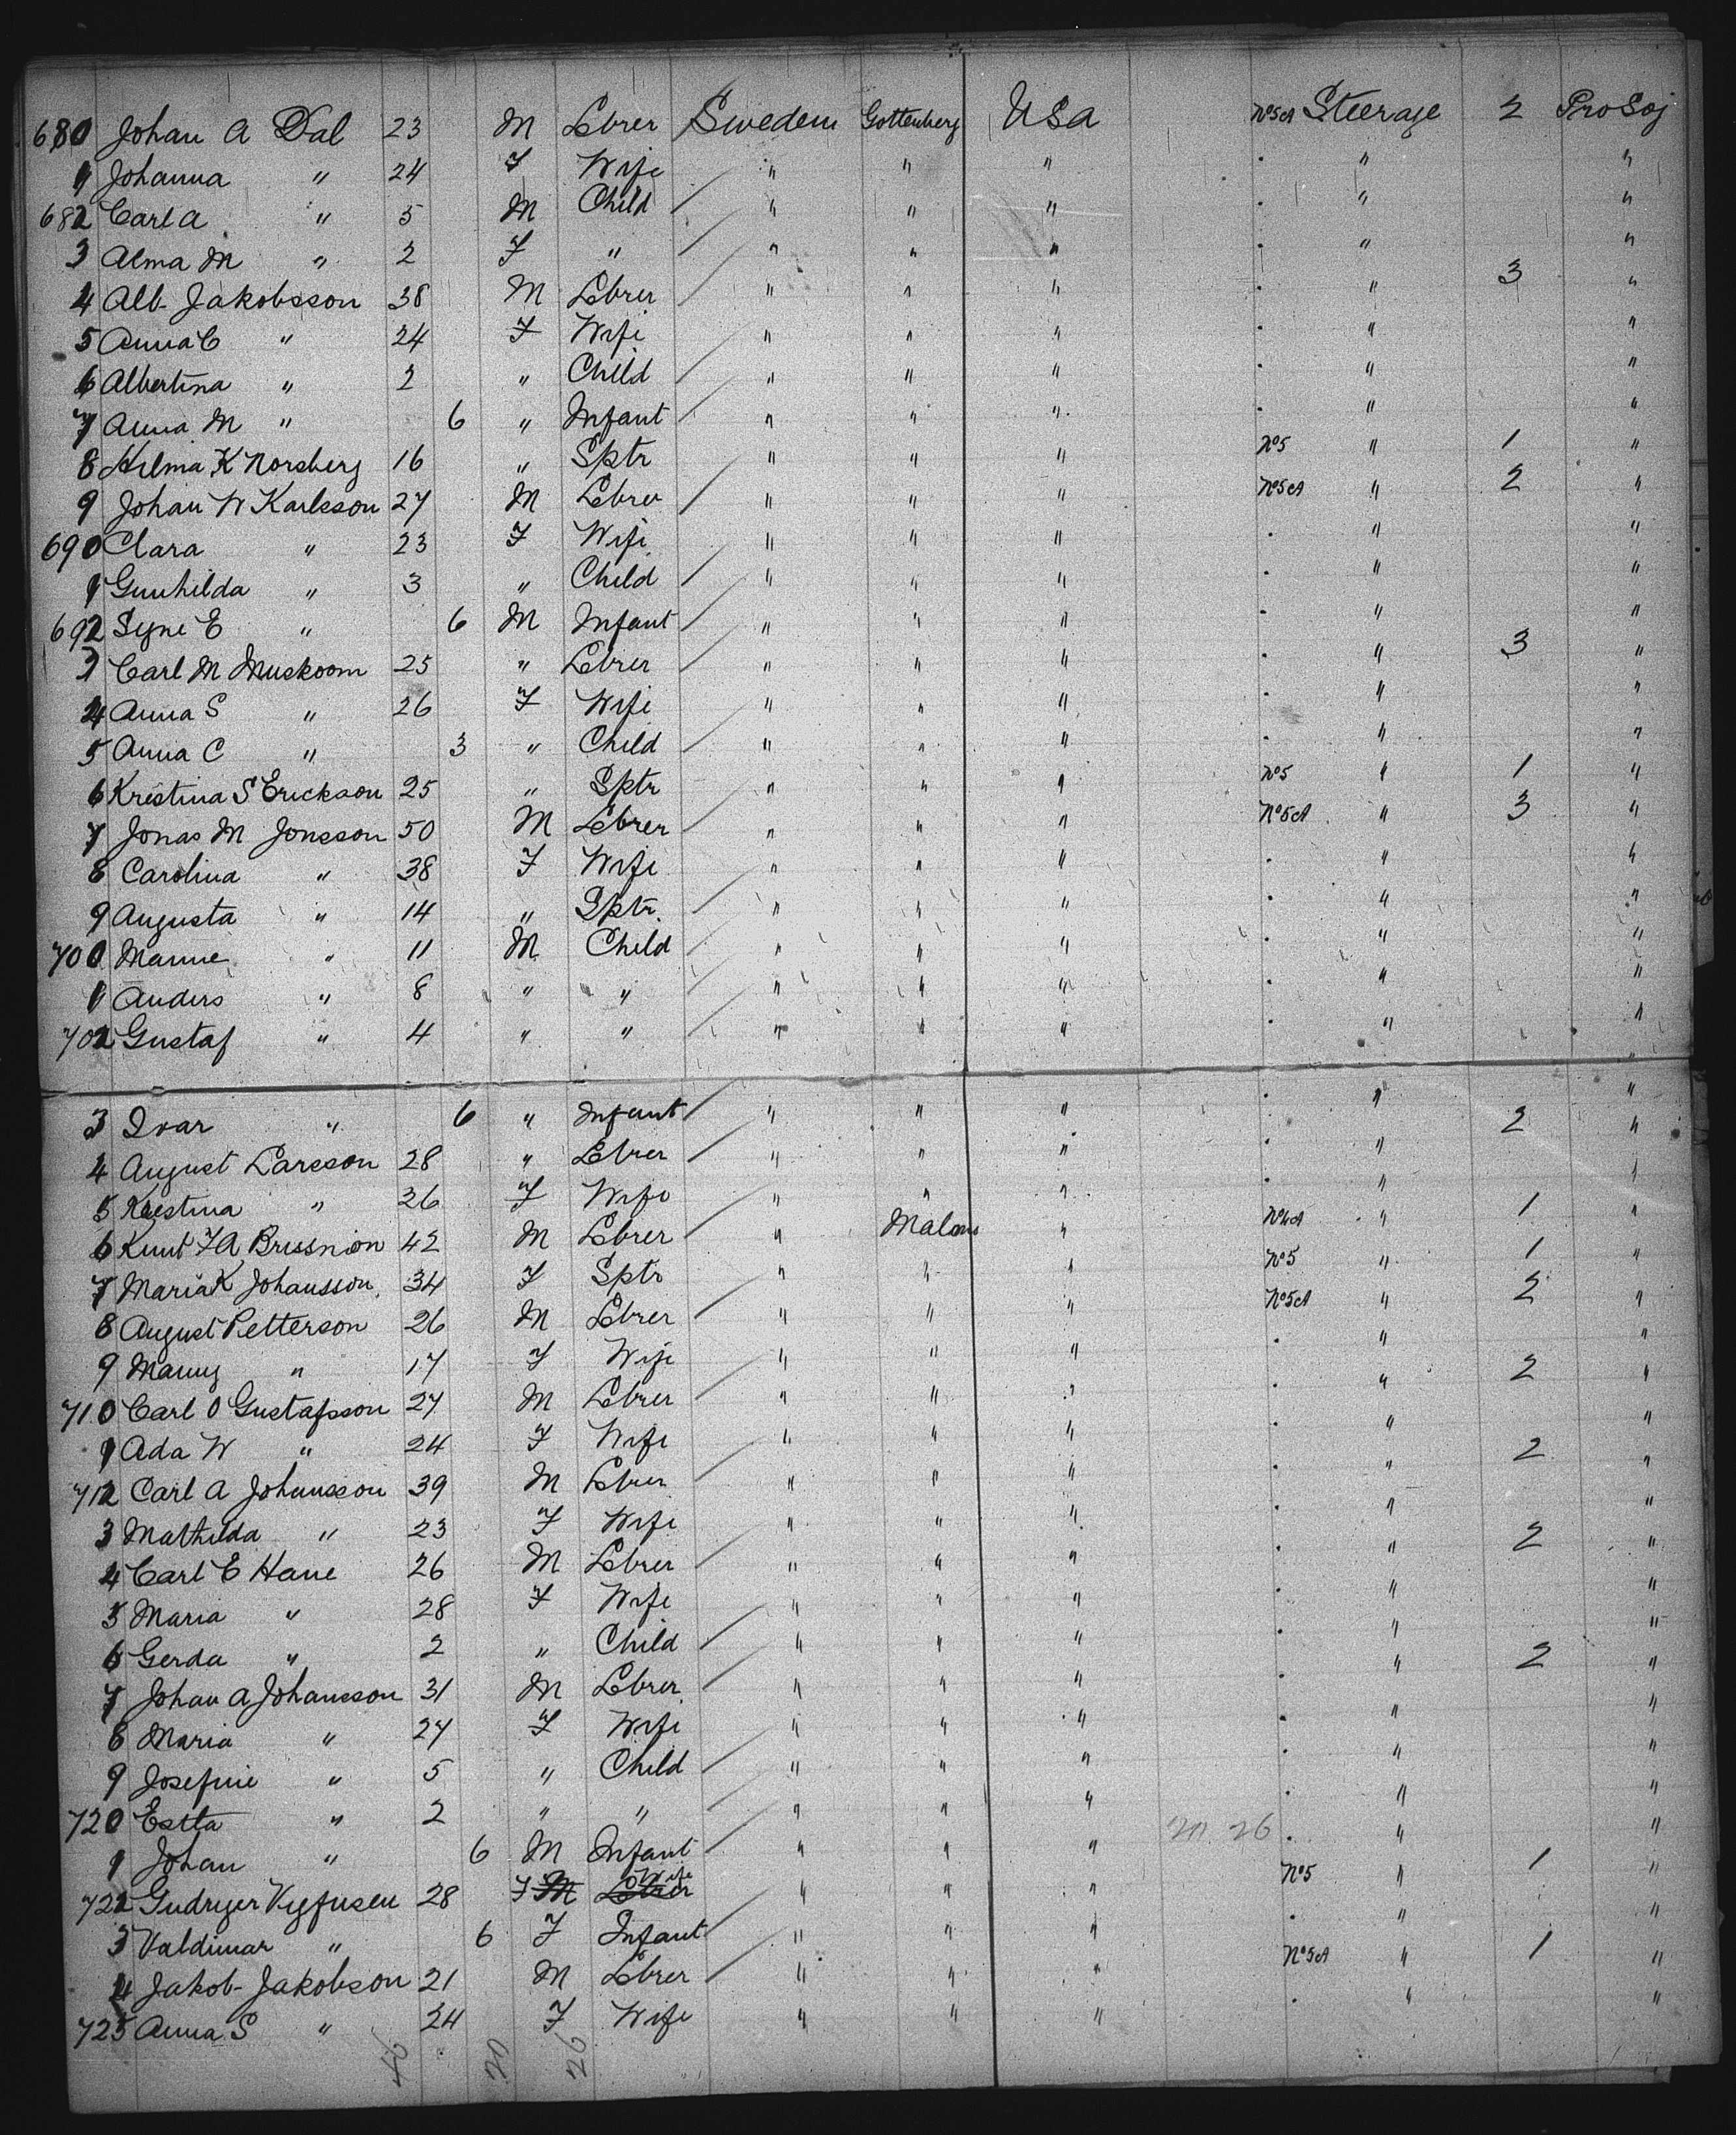 680 Johan A Dal 23 M Lbrer Sweden Gottenberg USA No5A Steerage 2 ProSoj
1 Johanna " 24 F Wife " " " . " "
682 Carl A " 5 M Child " " " . " "
3 Alma M " 2 F " " " " . " "
4 Alb. Jakobsson 38 M Lbrer " " " . " 3 "
5 Anna C " 24 F Wife " " " . " "
6 Albertina " 2 " Child " " " . " "
7 Anna M " 6 " Infant " " " . " "
8 Hilma K Norsberg 16 " Sptr " " " No5 " 1 "
9 Johan W Karlsson 27 M Lbrer " " " No5A " 2 "
690 Clara " 23 F Wife " " " . " "
1 Gunhilda " 3 " Child " " " . " "
692 Syne E " 6 M Infant " " " . " "
3 Carl M Muskoom 25 " Lbrer " " " . " 3 "
4 Anna S " 26 F Wife " " " . " "
5 Anna C " 3 " Child " " " . " "
6 Kristina S Erickson 25 " Sptr " " " No5 " 1 "
7 Jonas M Jonsson 50 M Lbrer " " " No5A " 3 "
8 Carolina " 38 F Wife " " " . " "
9 Augusta " 14 " Sptr. " " " . " "
700 Manne " 11 M Child " " " . " "
1 Anders " 8 " " " " " . " "
702 Gustaf " 4 " " " " " . " "
3 Ivar " 6 " Infant " " " . " "
4 August Larsson 28 " Lbrer " " " . " 2 "
5 Kristina " 26 F Wife " " " . " "
6 Knut F A 42 M Lbrer " " No4A " 1 "
7 Maria K Johansson 34 F Sptr " " " No5 " 1 "
8 August Petterson 26 M Lbrer " " " No5A " 2 "
9 " 17 F Wife " " " . " "
710 Carl O Gustafsson 27 M Lbrer " " " . " 2 "
1 Ada W " 24 F Wife " " " . " "
712 Carl A Johansson 39 M Lbrer " " " . " 2 "
3 Mathilda " 23 F Wife " " " . " "
4 Carl E Hane 26 M Lbrer " " " . " 2 "
5 Maria " 28 F Wife " " " . " "
6 Gerda " 2 " Child " " " . " "
7 Johan A Johansson 31 M Lbrer " " " . " 2 "
8 Maria " 24 F Wife " " " . " "
9 Josefine " 5 " Child " " " . " "
720 Estta " 2 " " " " " . " "
1 Johan " 6 M Infant " " " 20 26 . " "
722 Vigfusen 28 F M Lbrer Wife " " " No5 " 1 "
3 Valdimar " 6 F Infant " " " . " "
4 Jakob Jakobson 21 M Lbrer " " " No5A " 1 "
725 Anna S " 24 F Wife " " " . " "
46 20 26